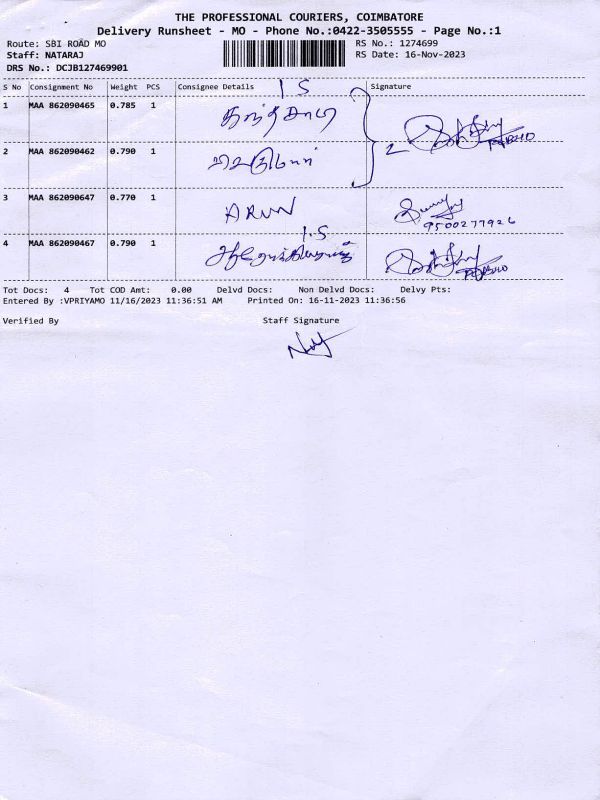 THE PROFESSIONAL COURIERS, COIMBATORE
Delivery Runsheet - MO - Phone No.:0422-3505555 - Page No.:1
Route: SBI ROAD MO RS No.: 1274699
Staff: NATARAJ RS Date: 16-Nov-2023
DRS No.: DCJB127469901
S No Consignment No Weight PCS Consignee Details Signature
1 S
1 MAA 862090465 0.785 1
2
2 MAA 862090462 0.790 1
3 MAA 862090647 0.770 1 ARUN
9500277926
1.S
4 MAA 862090467 0.790 1
Tot Docs: 4 Tot COD Amt: 0.00 Delvd Docs: Non Delvd Docs: Delvy Pts:
Entered By :VPRIYAMO 11/16/2023 11:36:51 AM Printed On: 16-11-2023 11:36:56
Verified By Staff Signature